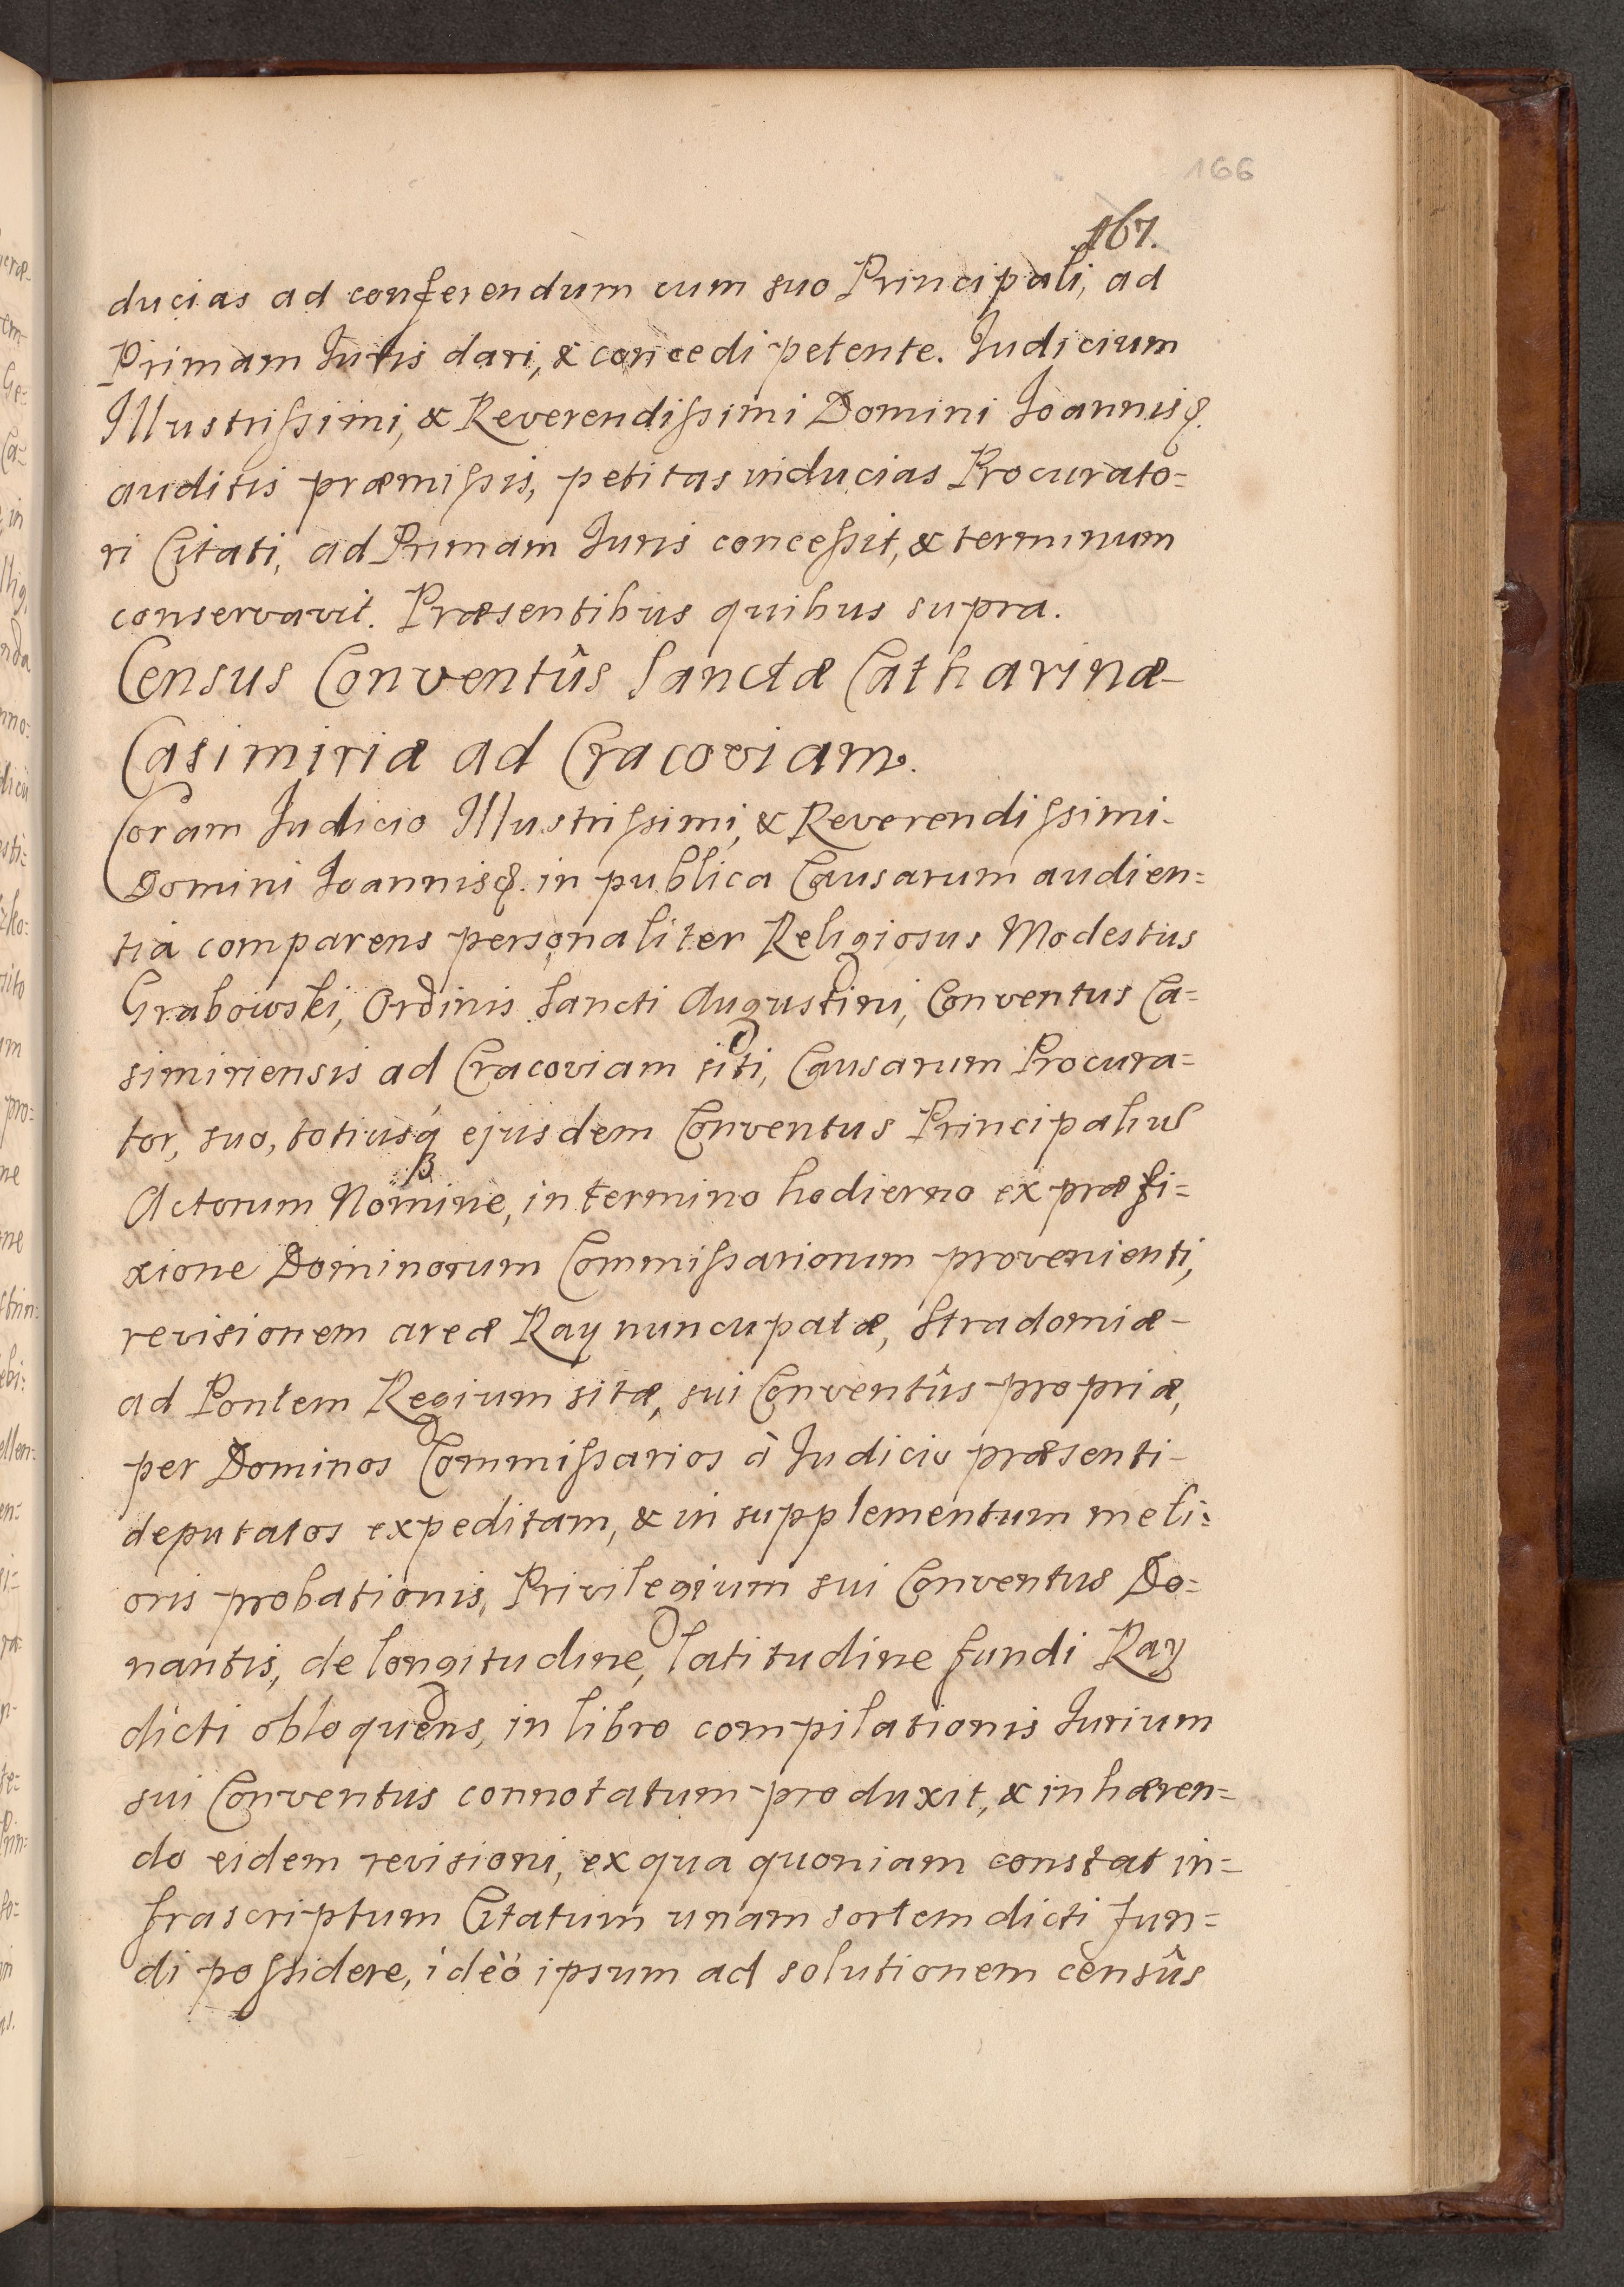 166
167.
ducias ad conferendum cum suo Principali, ad
Primam Juris dari, & concedi petente. Judicium
Illustrissimi, & Reverendissimi Domini Joannis &.
auditis præmissis, petitas inducias Procurato=
ri Citati, ad Primam Juris concessit, & terminum
conservavit. Præsentibus quibus supra.
Census Conventûs Sanctæ Catharinæ
Casimiriæ ad Cracoviam.
Coram Judicio Illustrissimi, & Reverendissimi
Domini Joannis &. in publica Causarum audien=
tia comparens personaliter Religiosus Modestus
Grabowski, Ordinis Sancti Augustini, Conventus Ca=
simiriensis ad Cracoviam siti, Causarum Procura=
tor, suo, totiusq́ ejusdem Conventus Principalium
Actorum Nomine, in termino hodierno ex præfi=
xione Dominorum Commissariorum provenienti,
revisionem areæ Ray nuncupatæ, Stradomiæ
ad Pontem Regium sitæ, sui Conventûs propriæ,
per Dominos Commissarios à Judicio præsenti
deputatos expeditam, & in supplementum meli=
oris probationis, Privilegium sui Conventus Do=
nantis, de longitudine, latitudine fundi Ray
dicti obloquens, in libro compilationis Jurium
sui Conventus connotatum produxit, & inhæren=
do eidem revisioni, ex qua quoniam constat in=
frascriptum Citatum unam sortem dicti fun=
di possidere, ideò ipsum ad solutionem censûs